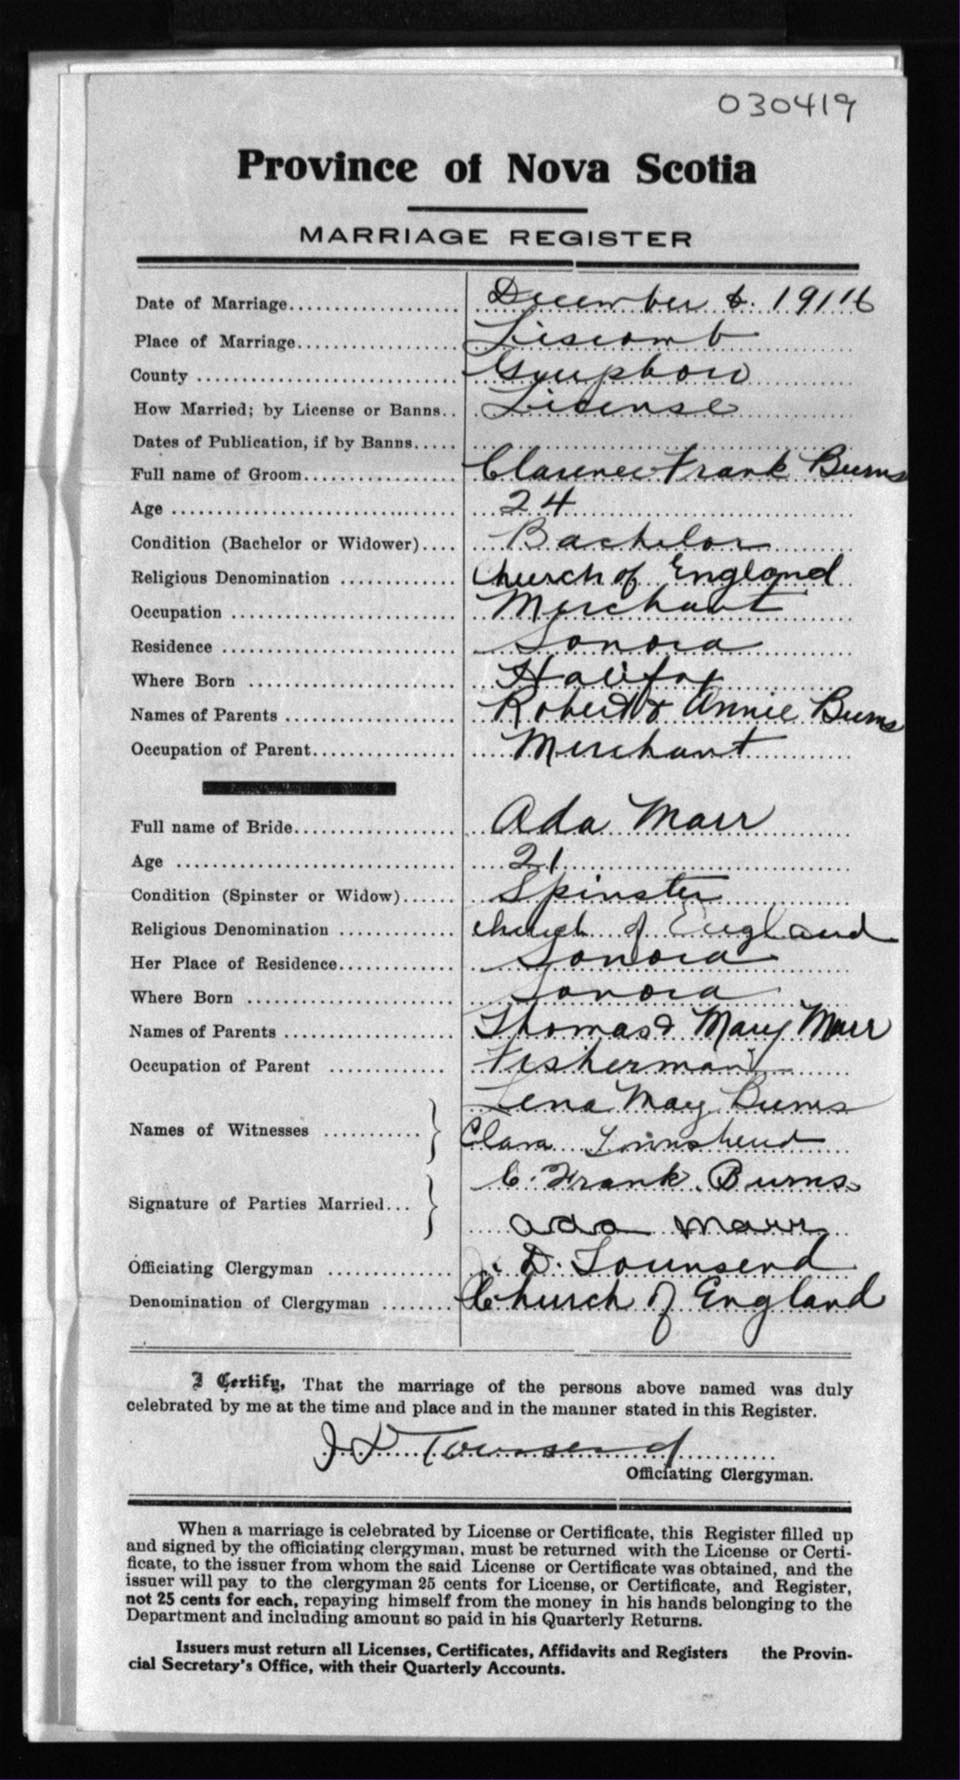 030419
Province of Nova Scotia
MARRIAGE REGISTER
Date of Marriage.................... December 6. 1916
Place of Marriage................... Liscomb
County .............................. Guysboro
How Married; by License or Banns.. License
Dates of Publication, if by Banns.....
Full name of Groom.................. Clarence Frank Burns
Age ................................. 24
Condition (Bachelor or Widower).... Bachelor
Religious Denomination ............. Church of England
Occupation .......................... Merchant
Residence ........................... Sonora
Where Born ........................ Halifax
Names of Parents ................... Robert & Annie Burns
Occupation of Parent................ Merchant
Full name of Bride................... Ada Marr
Age ................................ 21
Condition (Spinster or Widow)...... Spinster
Religious Denomination ............. Church of England
Her Place of Residence.............. Sonora
Where Born ........................ Sonora
Names of Parents ................... Thomas & Mary Marr
Occupation of Parent ............... Fisherman
Names of Witnesses ........... } Lena May Burns
Clara Townshend
Signature of Parties Married... } C. Frank Burns
Ada Marr
Officiating Clergyman ............... D. Townsend
Denomination of Clergyman ........ Church of England
I Certify, That the marriage of the persons above named was duly
celebrated by me at the time and place and in the manner stated in this Register.
Townsend
Officiating Clergyman.
When a marriage is celebrated by License or Certificate, this Register filled up
and signed by the officiating clergyman, must be returned with the License or Certi-
ficate, to the issuer from whom the said License or Certificate was obtained, and the
issuer will pay to the clergyman 25 cents for License, or Certificate, and Register,
not 25 cents for each, repaying himself from the money in his hands belonging to the
Department and including amount so paid in his Quarterly Returns.
Issuers must return all Licenses, Certificates, Affidavits and Registers the Provin-
cial Secretary's Office, with their Quarterly Accounts.